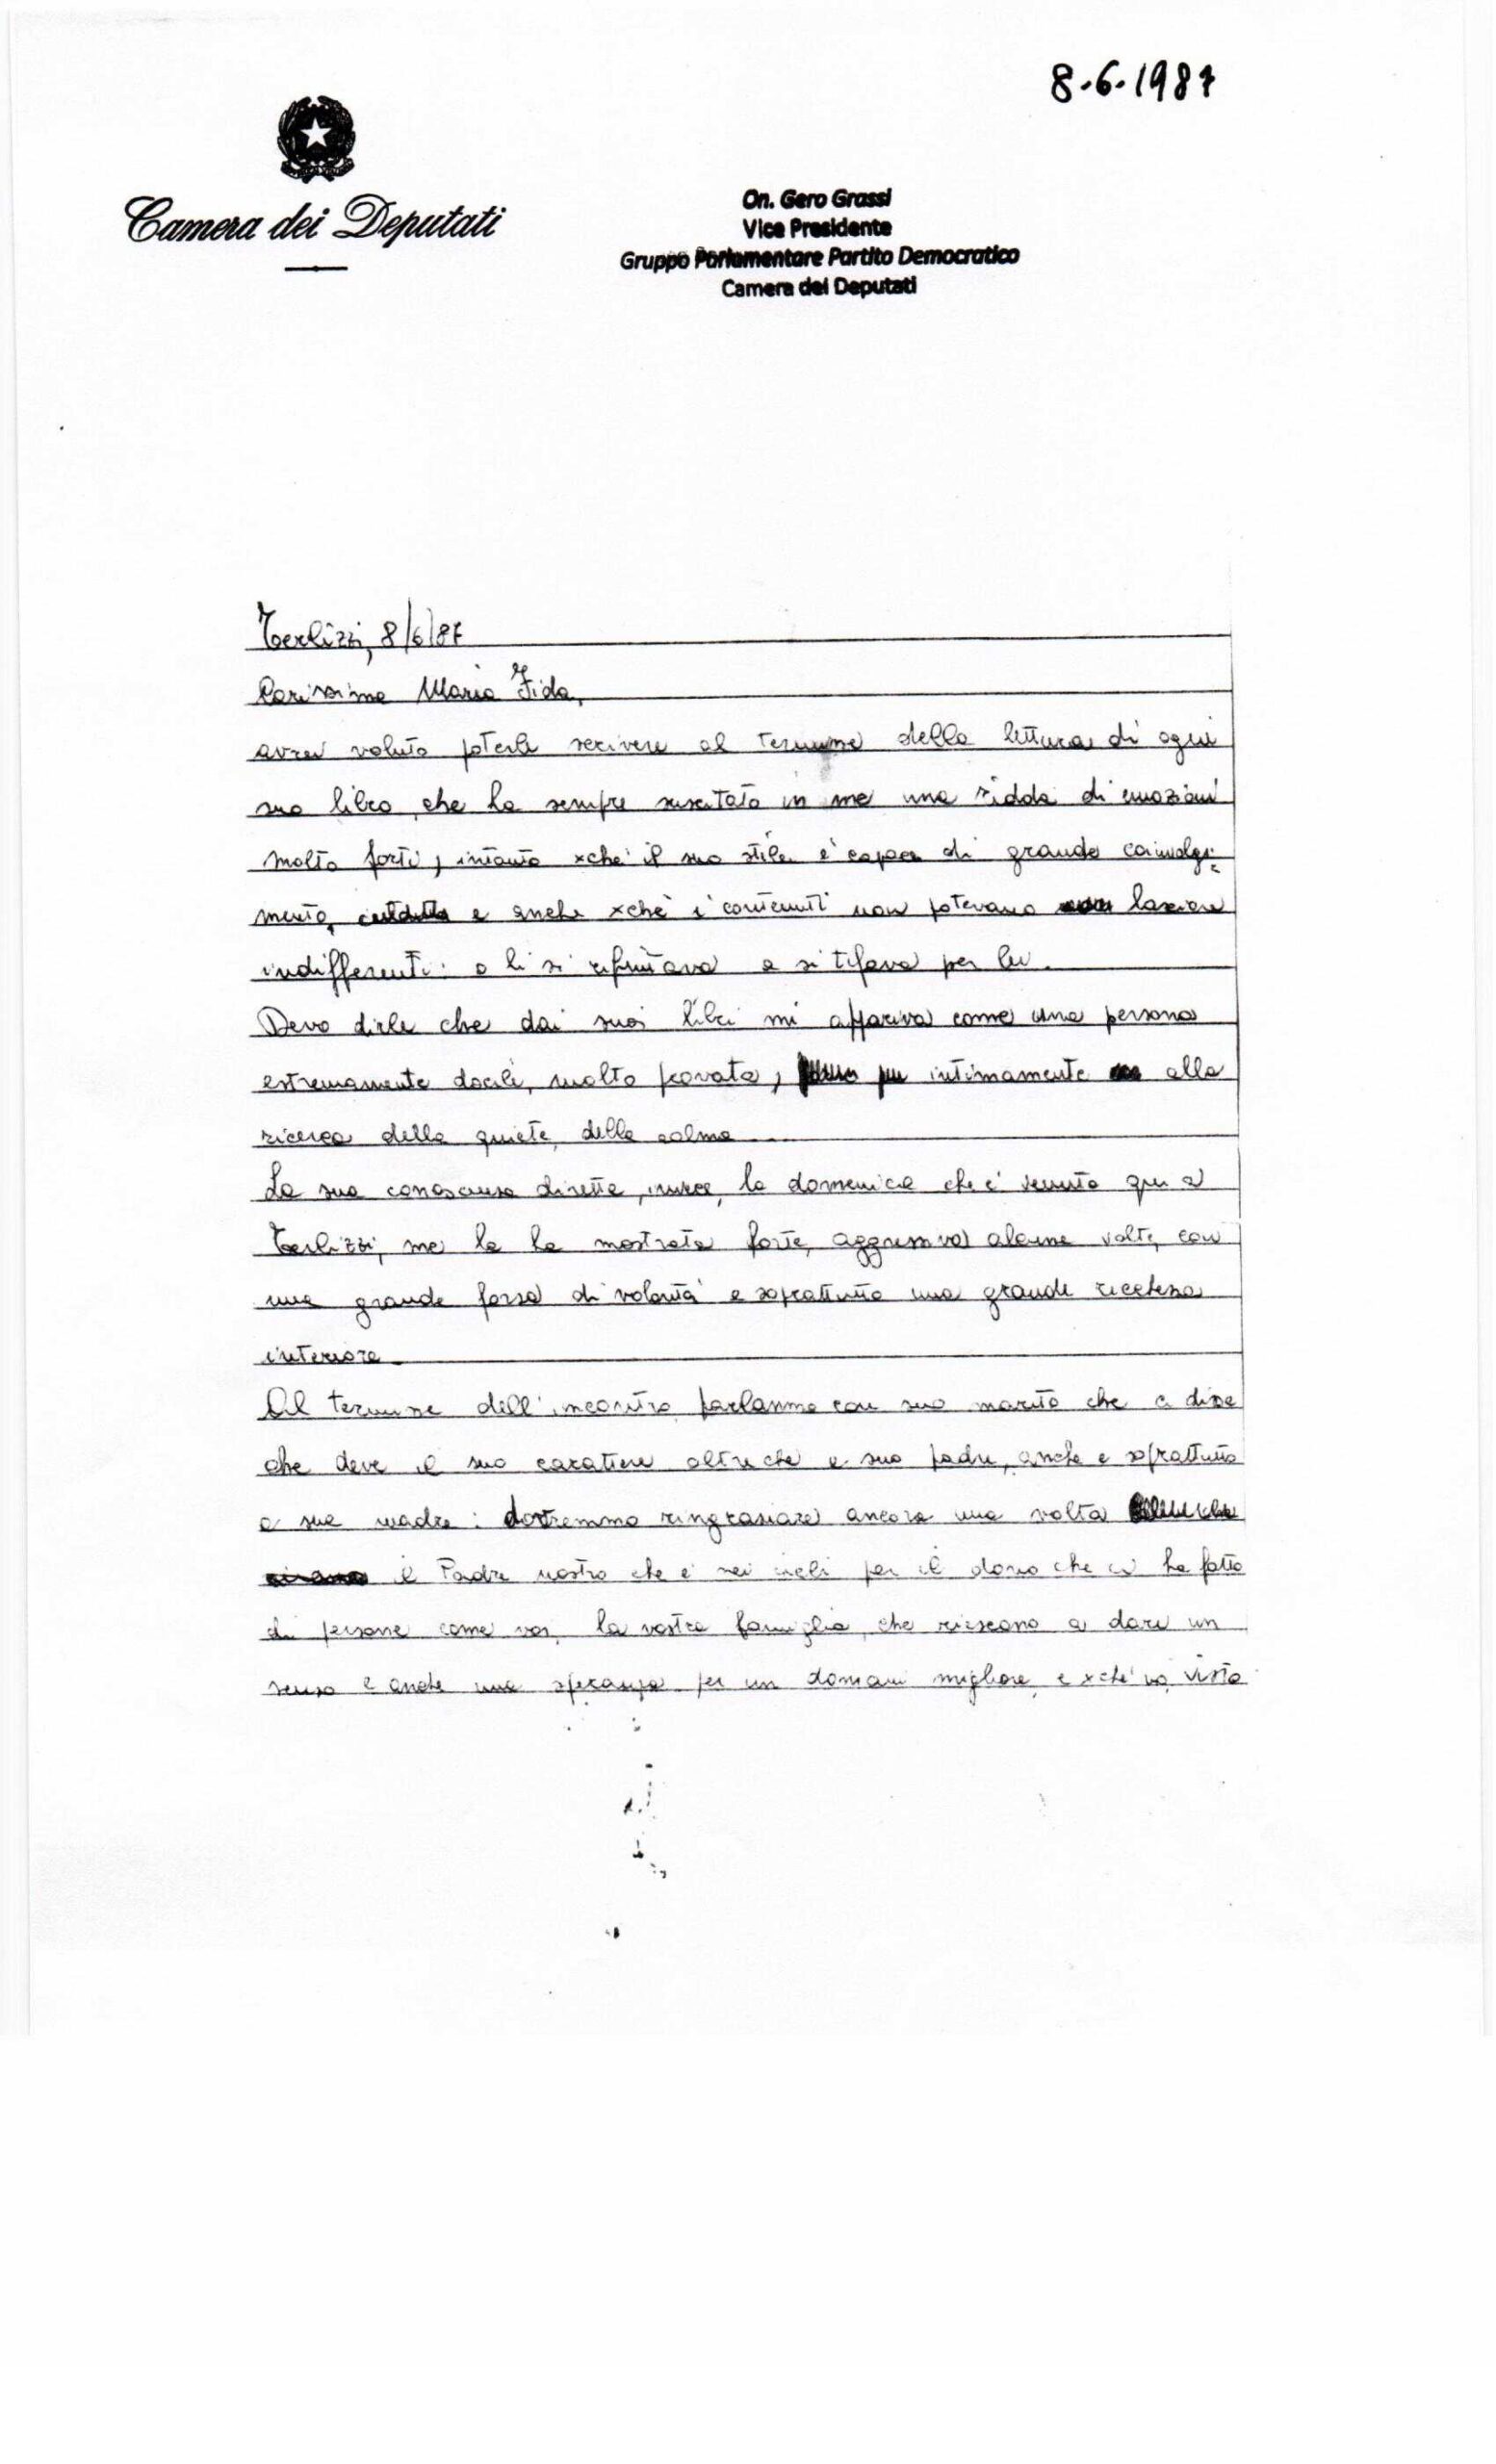 8.6.1987
Camera dei Deputati
On. Gero Grassi
Vice Presidente
Gruppo Parlamentare Partito Democratico
Camera dei Deputati
Terlizzi, 8/6/87
Carissima Maria Fida,
avrei voluto poterle scrivere al termine della lettura di ogni
suo libro, che ha sempre suscitato in me una ridda di emozioni
molto forti, intanto xchè il suo stile è capace di grande coinvolgi=
mento, e anche xchè i contenuti non potevano lasciare
indifferenti: o li si rifiutava o si tifava per lei.
Devo dirle che dai suoi libri mi appariva come una persona
estremamente docile, molto provata, intimamente alla
ricerca della quiete, della calma...
La sua conoscenza diretta, invece, la domenica che è venuta qui a
Terlizzi, me la ha mostrata forte, aggressiva alcune volte, con
una grande forza di volontà e soprattutto una grande ricchezza
interiore.
Al termine dell'incontro parlammo con suo marito che ci disse
che deve il suo carattere oltre che a suo padre, anche e soprattutto
a sua madre: dovremmo ringraziare ancora una volta
il Padre nostro che è nei cieli per il dono che ci ha fatto
di persone come voi, la vostra famiglia, che riescono a dare un
senso e anche una speranza per un domani migliore, e xchè no, vista